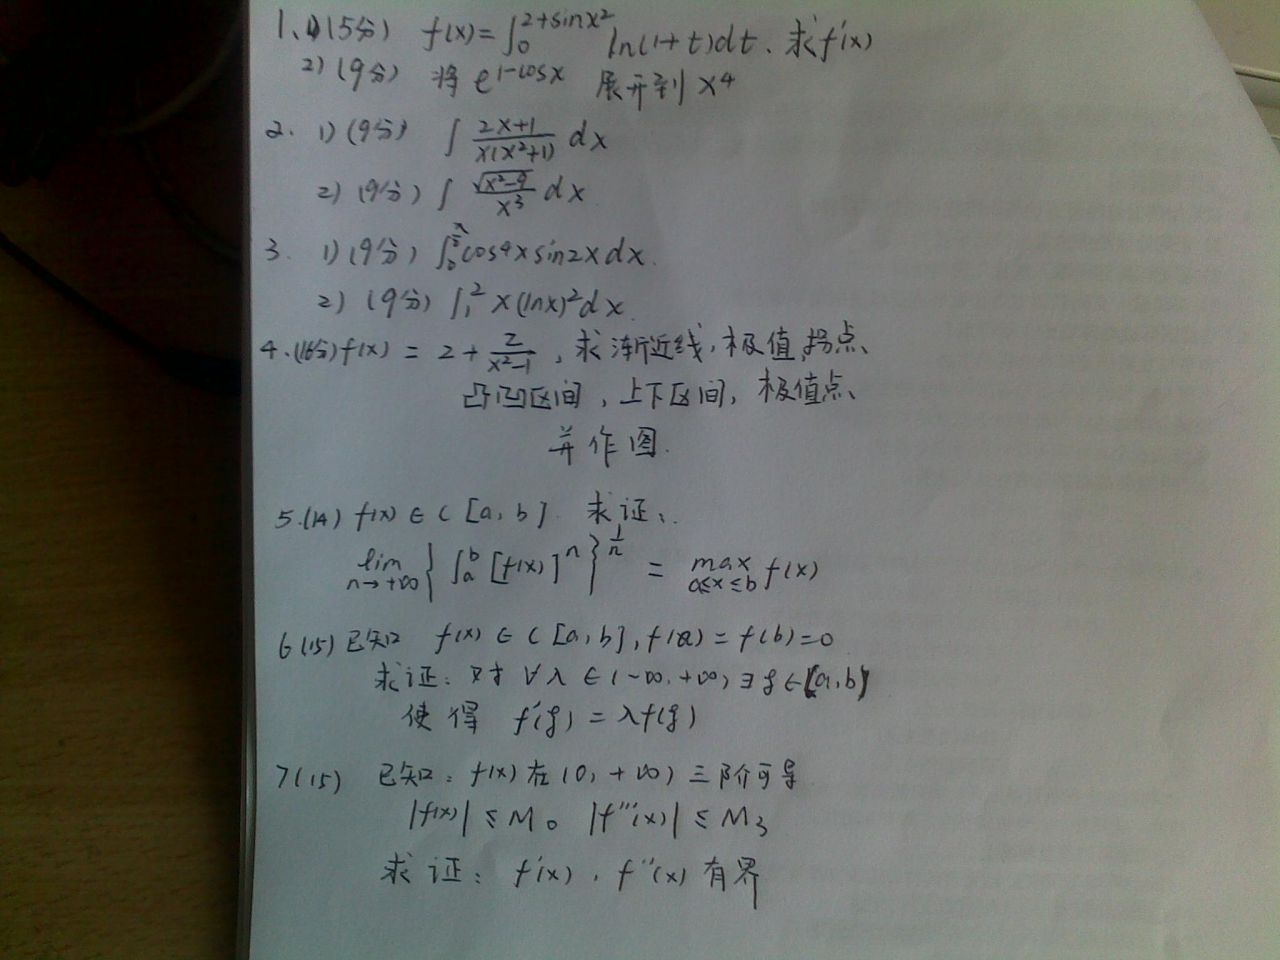 1、1)(5分) f(x)=∫₀^{2+sinx²} ln(1+t)dt、求f'(x)
2)(9分) 将 e^{1-cosx} 展开到 x⁴
2. 1)(9分) ∫ \frac{2x+1}{x(x²+1)} dx
2)(9分) ∫ \frac{\sqrt{x²-9}}{x³} dx
3. 1)(9分) ∫₀^{\frac{π}{2}} cos4x sin2x dx.
2)(9分) ∫₁² x(lnx)²dx.
4.(16分) f(x) = 2+\frac{2}{x²-1}, 求渐近线,极值,拐点、
凸凹区间,上下区间,极值点、
并作图.
5.(14) f(x) ∈ C[a,b]. 求证:
\lim_{n→+∞} {∫_a^b [f(x)]^n}^{\frac{1}{n}} = \max_{a≤x≤b} f(x)
6(15) 已知 f(x) ∈ C[a,b], f(a)=f(b)=0.
求证:对 ∀λ∈(-∞,+∞), ∃ξ∈[a,b]
使得 f'(ξ)=λf(ξ)
7(15) 已知: f(x)在(0,+∞)三阶可导.
|f(x)|≤M₀ |f'''(x)|≤M₃
求证: f'(x), f''(x)有界